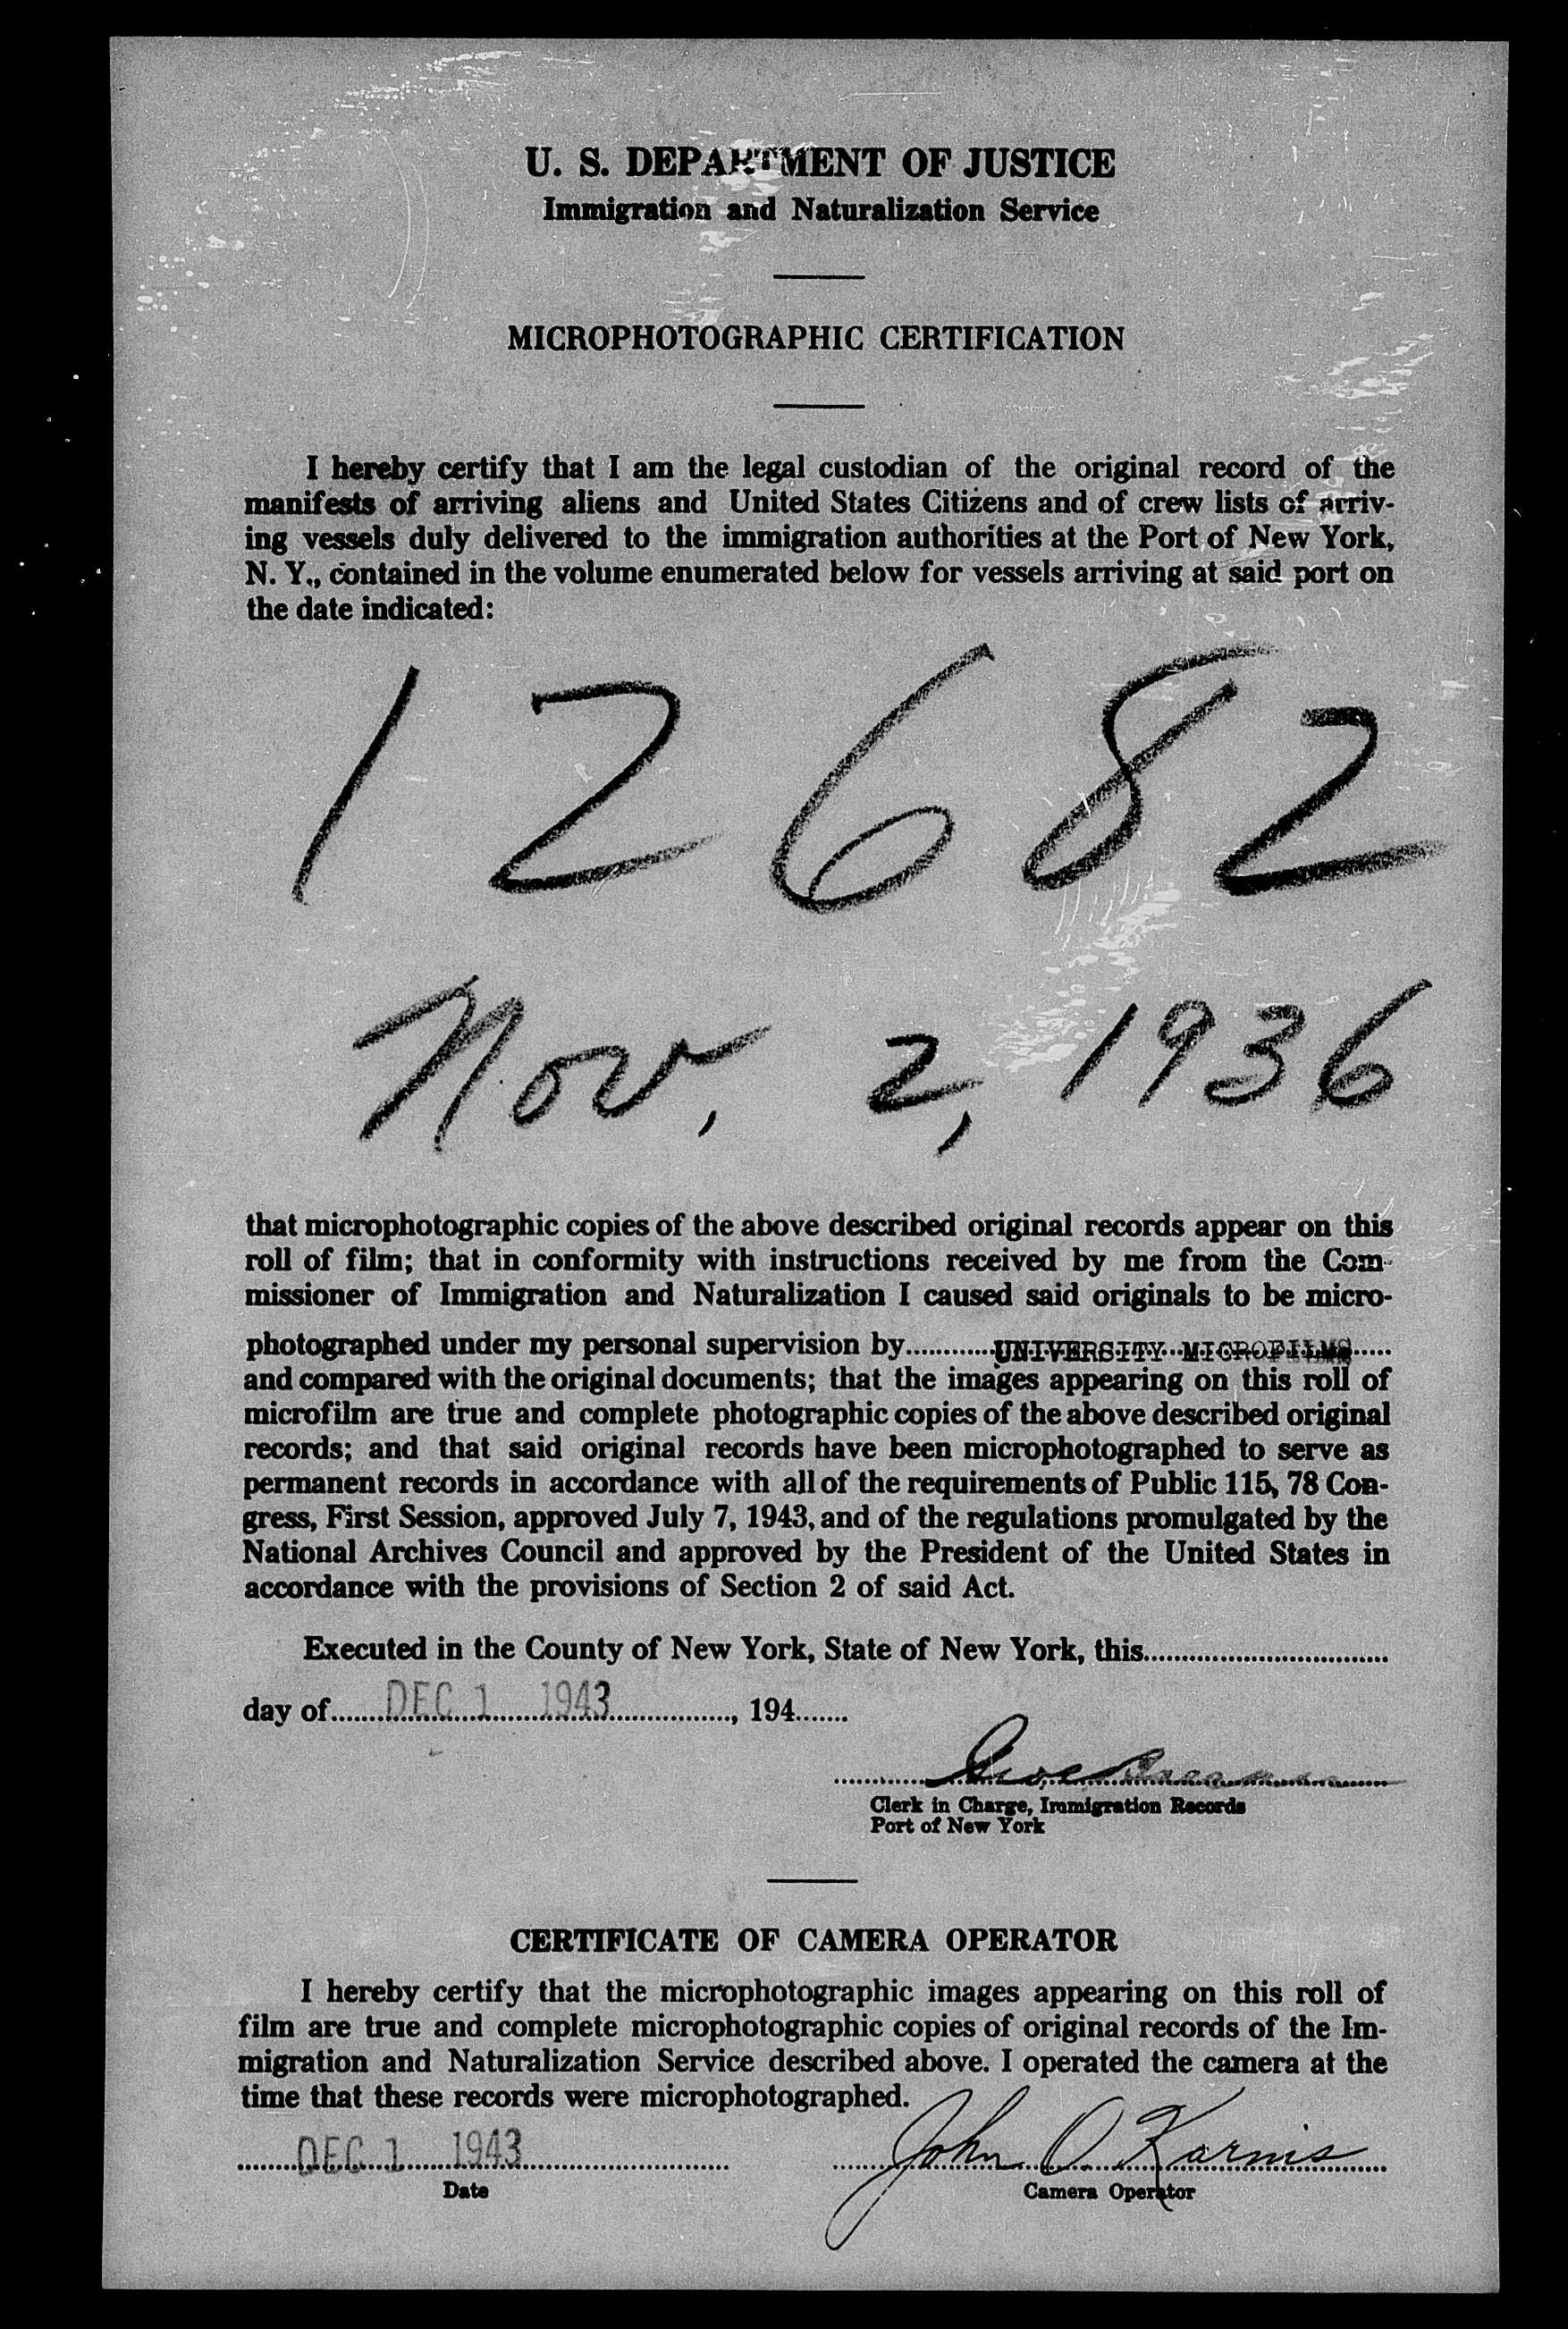 U. S. DEPARTMENT OF JUSTICE
Immigration and Naturalization Service
MICROPHOTOGRAPHIC CERTIFICATION
I hereby certify that I am the legal custodian of the original record of the
manifests of arriving aliens and United States Citizens and of crew lists of arriv-
ing vessels duly delivered to the immigration authorities at the Port of New York,
N. Y., contained in the volume enumerated below for vessels arriving at said port on
the date indicated:
12682
Nov. 2, 1936
that microphotographic copies of the above described original records appear on this
roll of film; that in conformity with instructions received by me from the Com-
missioner of Immigration and Naturalization I caused said originals to be micro-
photographed under my personal supervision by............UNIVERSITY MICROFILMS.....
and compared with the original documents; that the images appearing on this roll of
microfilm are true and complete photographic copies of the above described original
records; and that said original records have been microphotographed to serve as
permanent records in accordance with all of the requirements of Public 115, 78 Con-
gress, First Session, approved July 7, 1943, and of the regulations promulgated by the
National Archives Council and approved by the President of the United States in
accordance with the provisions of Section 2 of said Act.
Executed in the County of New York, State of New York, this................................
day of.......DEC 1 1943................, 194.......
Clerk in Charge, Immigration Records
Port of New York
CERTIFICATE OF CAMERA OPERATOR
I hereby certify that the microphotographic images appearing on this roll of
film are true and complete microphotographic copies of original records of the Im-
migration and Naturalization Service described above. I operated the camera at the
time that these records were microphotographed.
DEC 1 1943 John O Karnis
Date Camera Operator